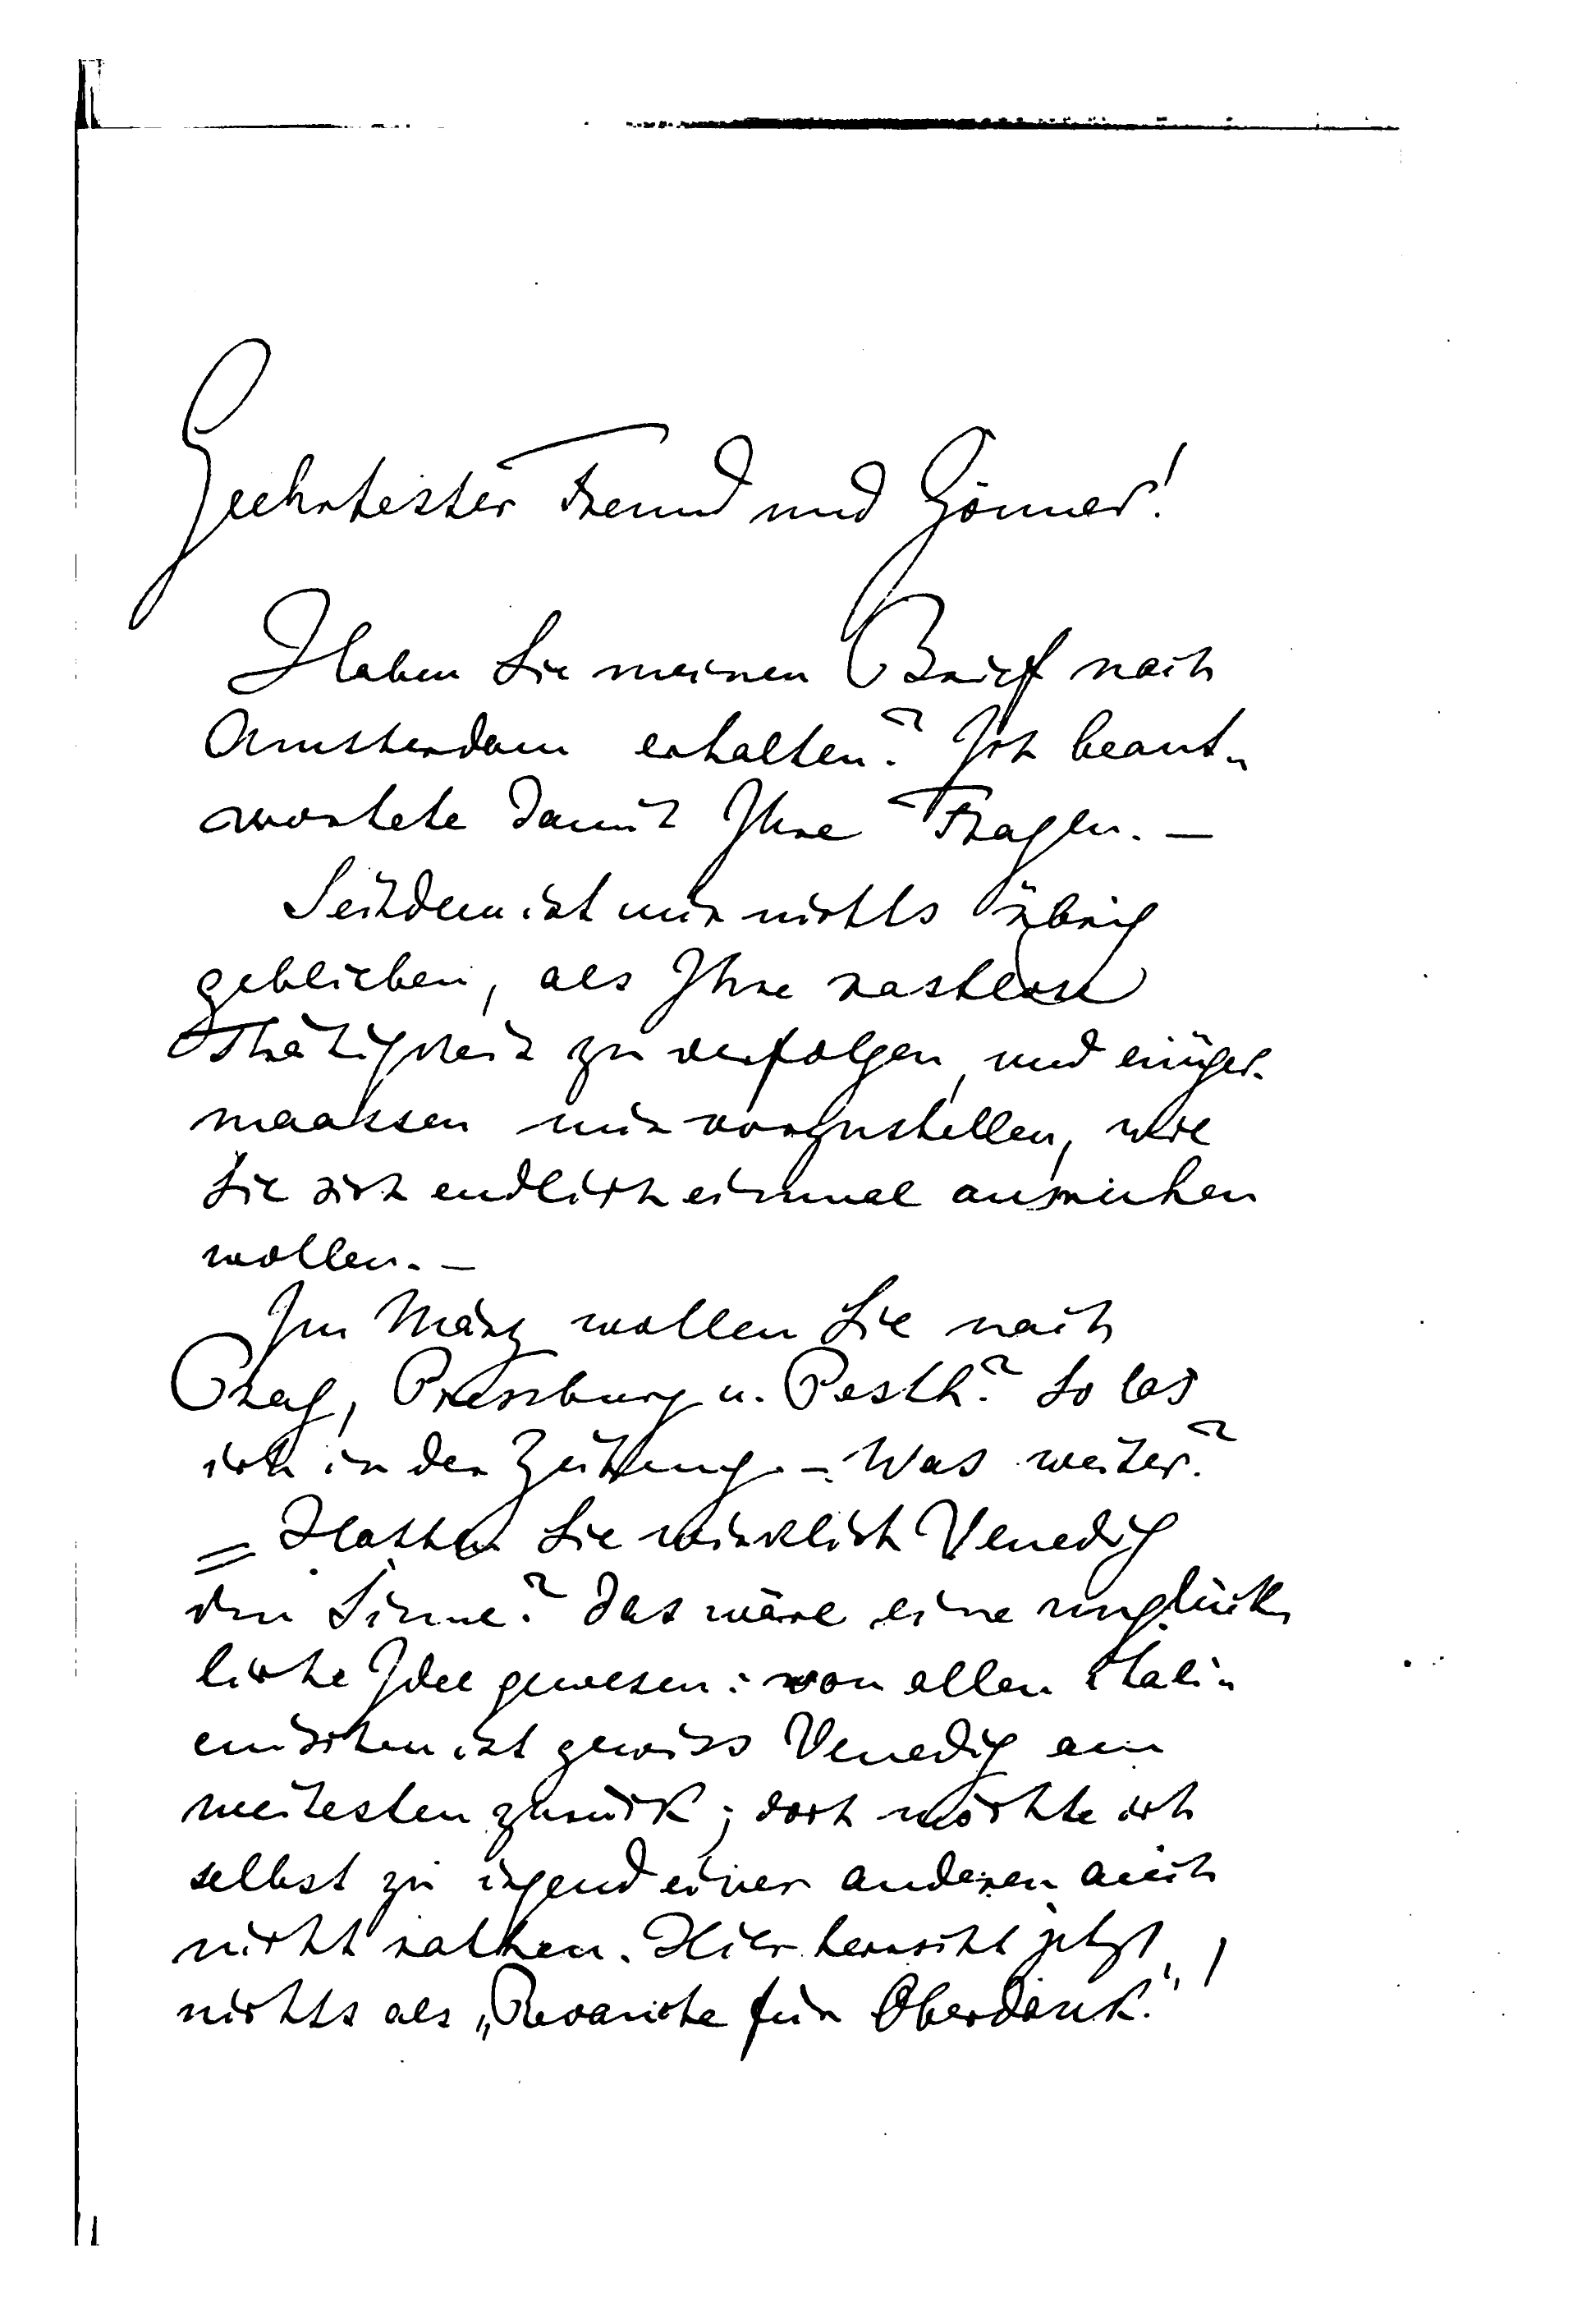 Geehrtester Freund und Gönner!
Haben Sie meinen Brief nach
Amsterdam erhalten? Ich beant-
wortete damit Ihre Fragen. —
Seitdem ist mir nichts übrig
geblieben, als Ihre rastlose
Thätigkeit zu verfolgen, und einiger-
maassen mir vorzustellen, wie
Sie sich endlich einmal ausruhen
wollen. —
Im März wollen Sie nach
Prag, Pressburg u. Pesth? So las
ich in der Zeitung. — Was weiter?
= Hatten Sie wirklich Venedig
im Sinne? Das wäre eine unglück-
liche Idee gewesen: von allen itali-
enischen ist gewiss Venedig am
weitesten zurück; dort möchte ich
selbst zu irgend einer anderen auch
nicht rathen. Hier herrscht jetzt
nichts als „Revanche für Oberdank."!